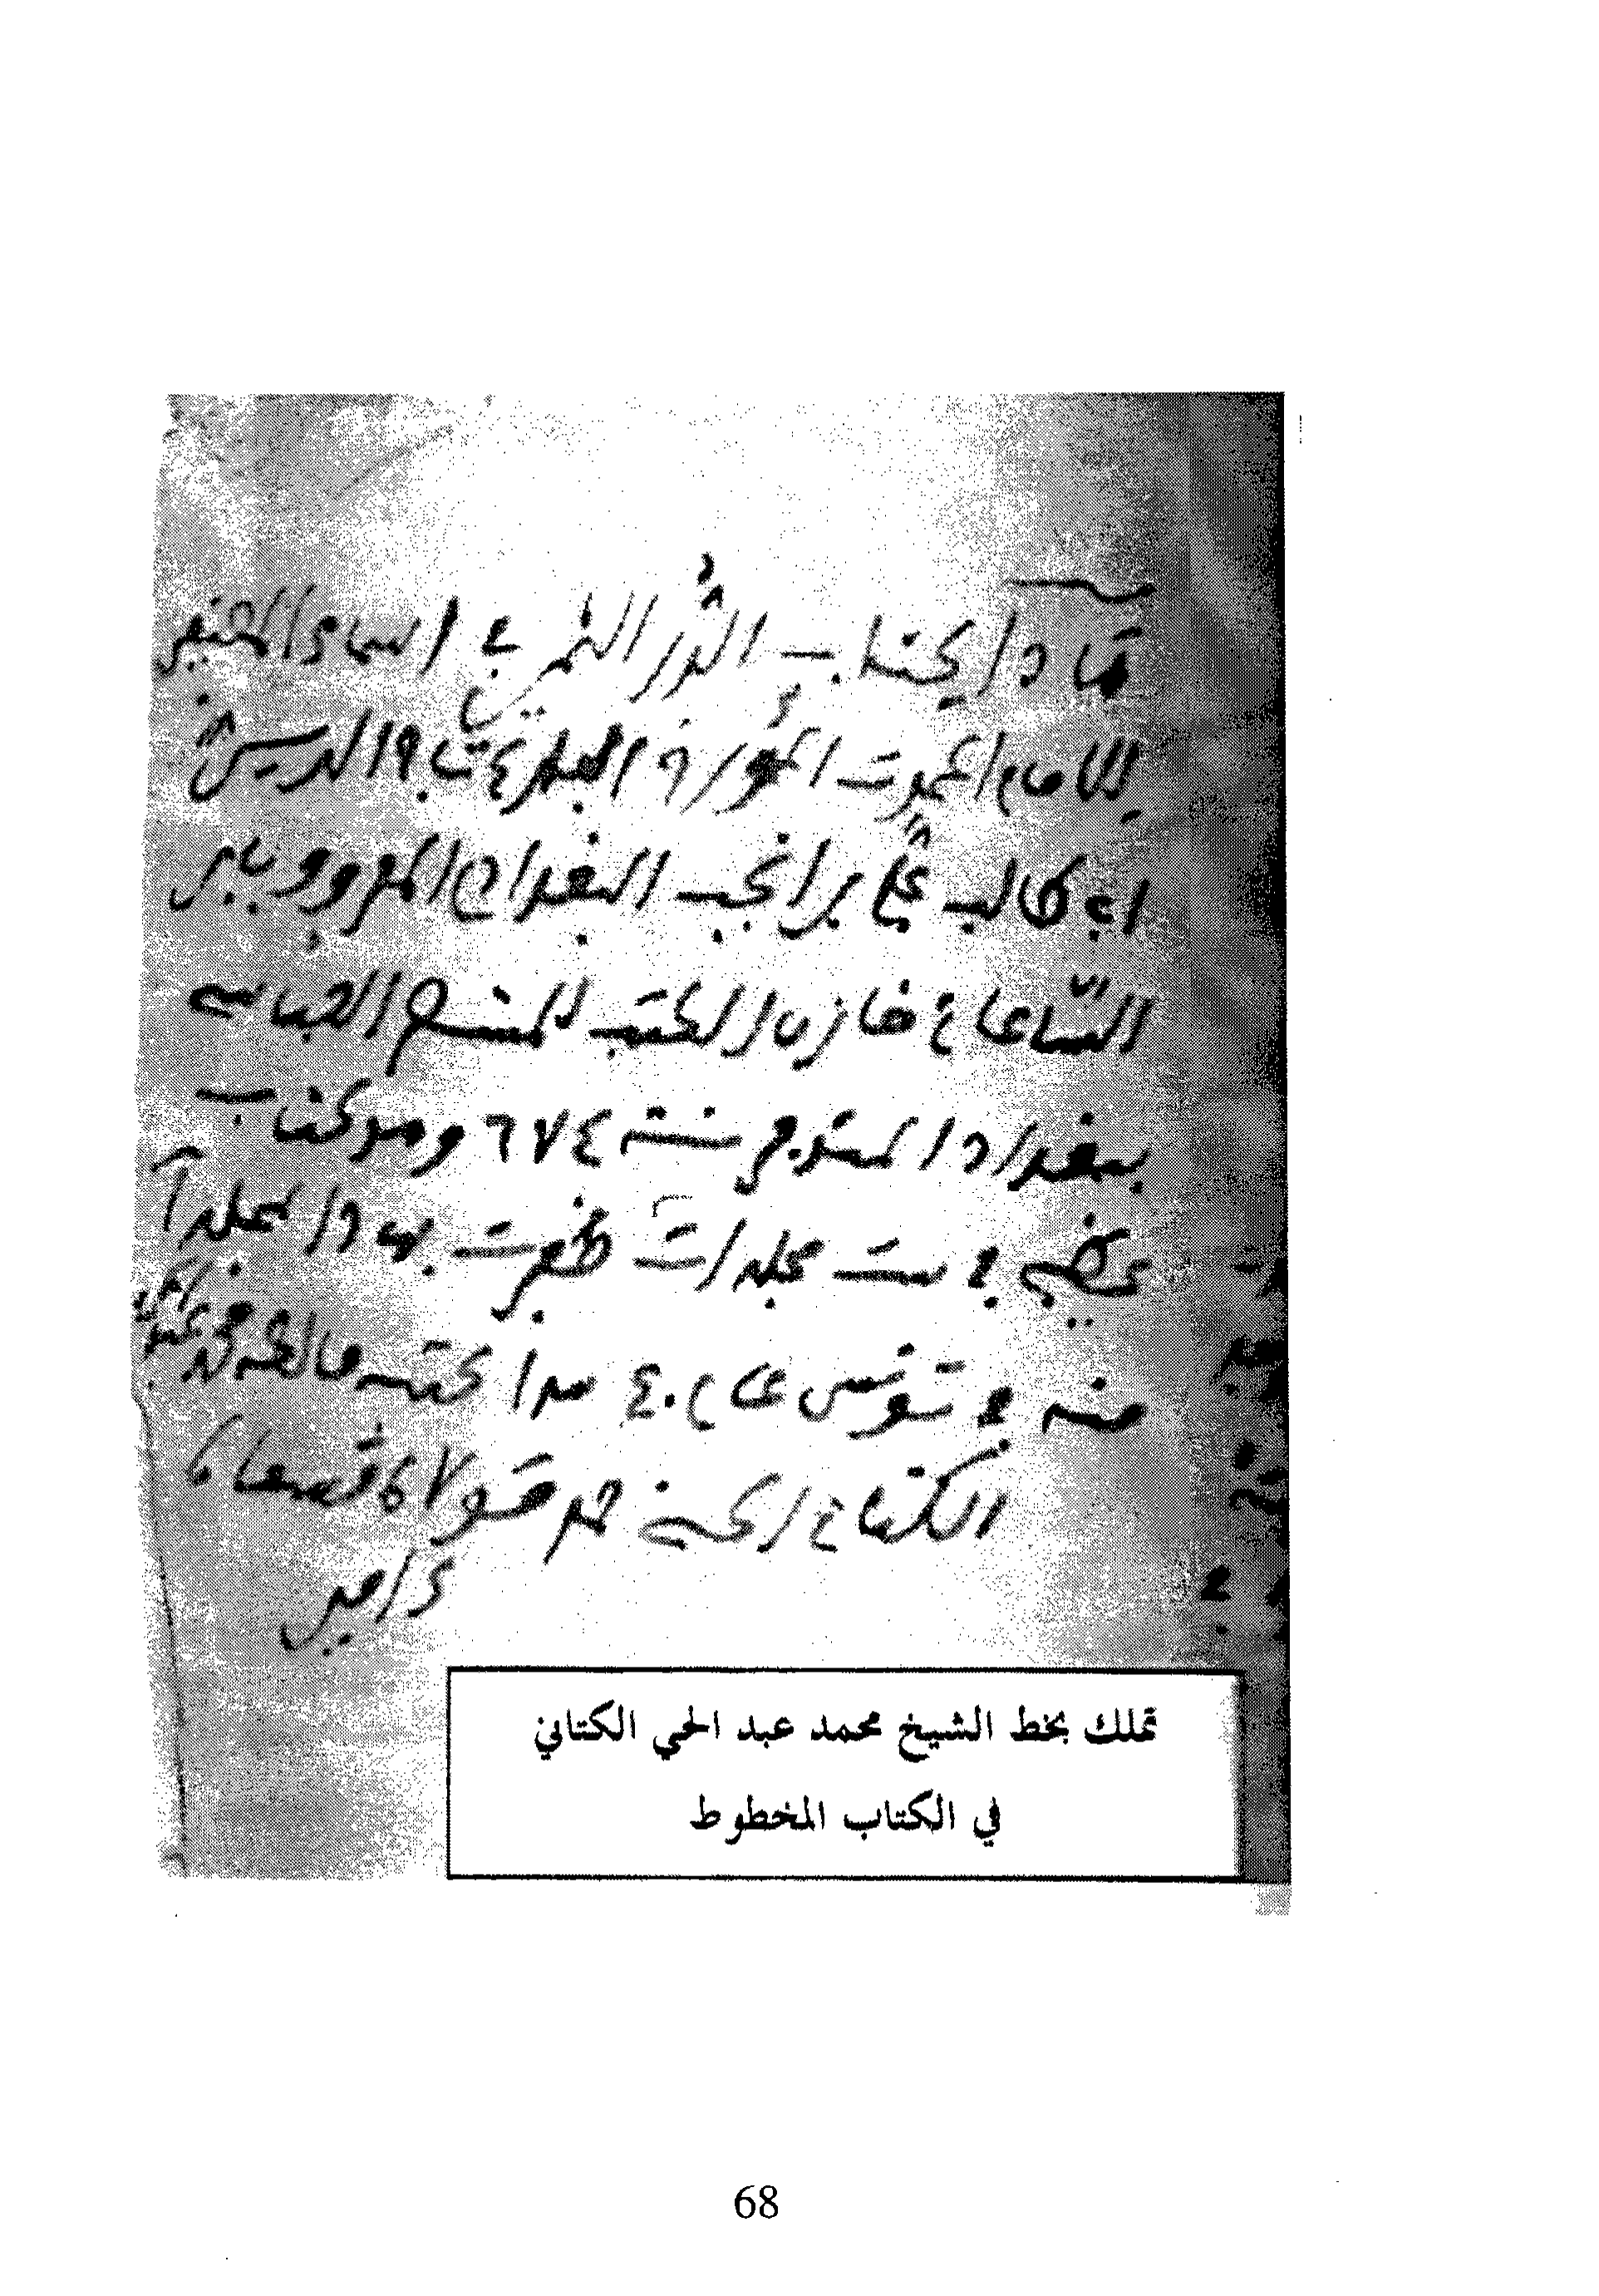 هاذا كتاب الدُّر الثمين في أسماء المصنفين
للامام المحدث المؤرخ البارع تاج الدين
ابي طالب علي بن انجب البغدادي المعروف بابن
السّاعاي خازن الكتب للمستعصم العباسي
ببغداد المتوفى سنة ٦٧٤ وهو كتاب
عظيم في ست مجلدات ظفرت بهاذا المجلد
منه في تونس عام ٤٠ هذا كتبه مالكه محمد عبد الحي
الكتاني الحسني
امين
تملك بخط الشيخ محمد عبد الحي الكتاني
في الكتاب المخطوط
68